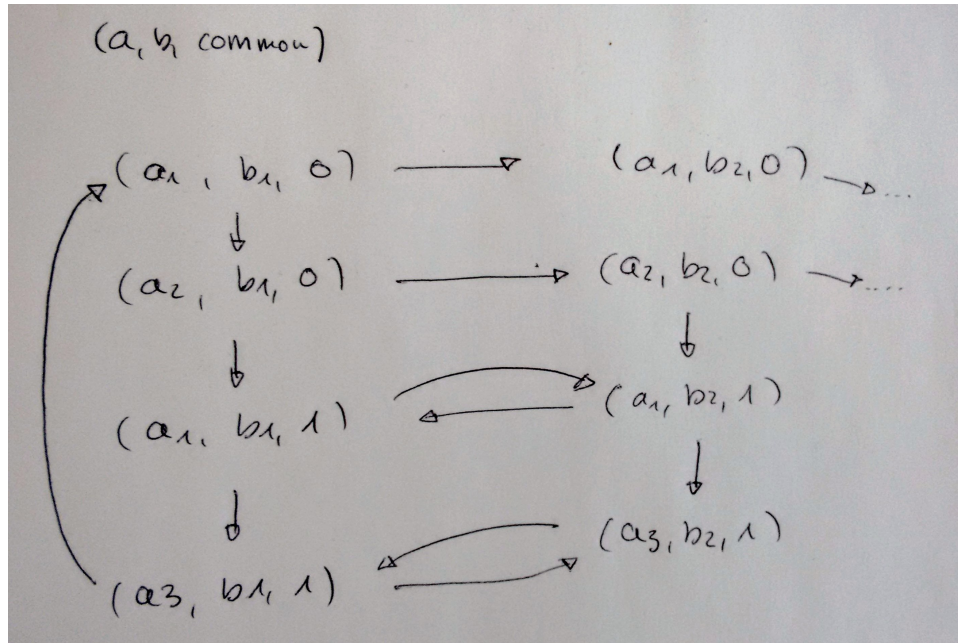 (a, b, common)
(a1, b1, 0) (a1, b2, 0) ...
(a2, b1, 0) (a2, b2, 0) ....
(a1, b1, 1) (a1, b2, 1)
(a3, b2, 1)
(a3, b1, 1)